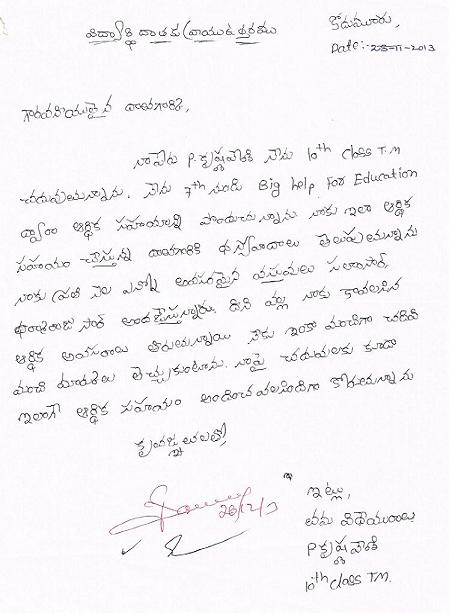 విద్యార్థి దాతకు వ్రాయు ఉత్తరము
కోడుమూరు,
Date:-28-11-2013
గౌరవనీయులైన దాతగారికి,
నా పేరు P. కృష్ణవేణి నేను 10th class T.M
చదువుతున్నాను. నేను 7th నుండి Big help For Education
ద్వారా ఆర్థిక సహాయాన్ని పొందుచున్నాను నాకు ఇలా ఆర్థిక
సహాయం చేస్తున్న దాతగారికి ధన్యవాదాలు తెలుపుతున్నాను
నాకు ప్రతి నెల ఎన్నో అవసరమైన వస్తువులు సార్,
సార్ అందజేస్తున్నారు. దీని వల్ల నాకు కావలసిన
ఆర్థిక అవసరాలు తీరుతున్నాయి నేను ఇంకా మంచిగా చదివి
మంచి మార్కులు తెచ్చుకుంటాను. నా పై చదువులకు కూడా
ఇలాగే ఆర్థిక సహాయం అందించవలసిందిగా కోరుతున్నాను
కృతజ్ఞతలతో,
ఇట్లు,
తమ విధేయురాలు
P కృష్ణవేణి
10th class T.M.